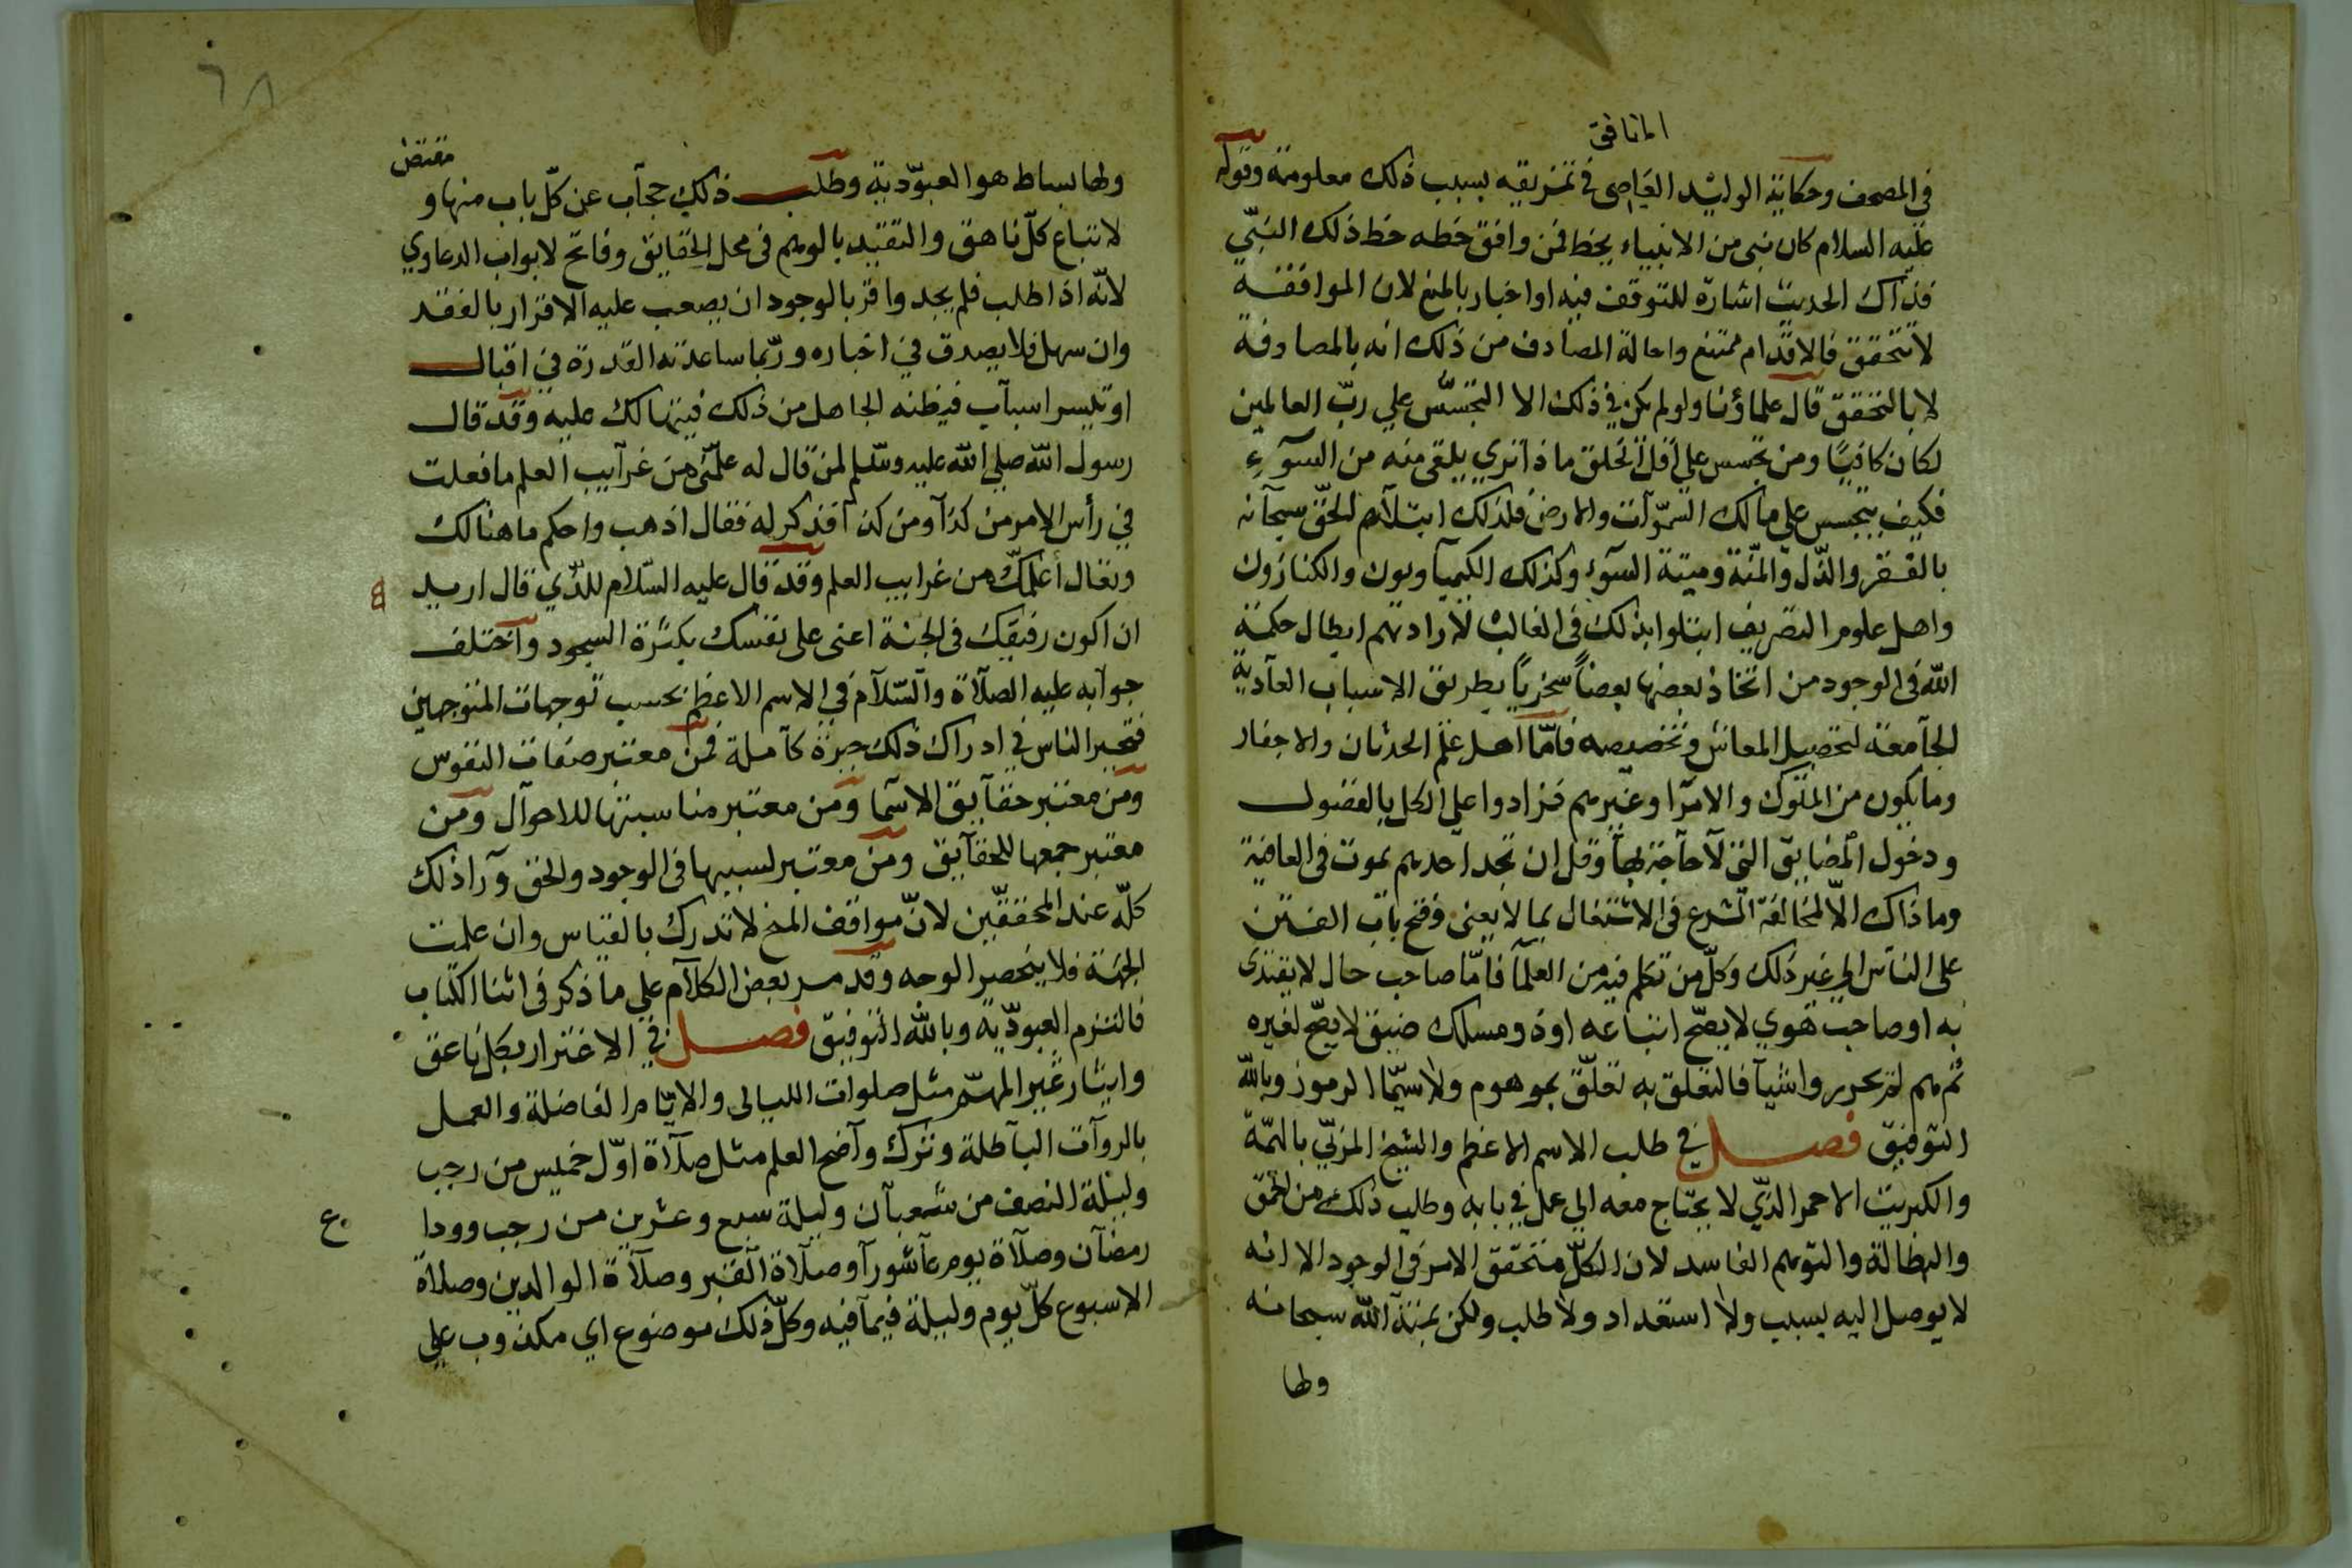 المنافق
في المصحف وحكاية الوليد العاصى في تمزيقه بسبب ذلك معلومة وقوله
عليه السلام كان نبى من الانبياء يخط فمن وافق خطه خط ذلك النبّي
فذاك الحديث اشارة للتوقف فيه او اخبار بالمنع لان الموافقة
لا تتحقق فالاقدام ممتنع واحالة المصادف من ذلك انه بالمصادفة
لا بالتحقق قال علماؤنا ولو لم يكن في ذلك الا التجسّس علي ربّ العالمين
لكان كافيًا ومن تجسس علي اقل الخلق ماذا تري يلقى منه من السوٓءِ
فكيف بتجسس علي مالك السّمٰوات والارض فلذلك ابتلاهم الحقّ سبحانه
بالفقر والذّل والمنّة وميتة السوٓء وكذلك الكيمياويون والكنازون
واهل علوم التصريف ابتلوا بذلك في الغالب لارادتهم ابطال حكمة
الله في الوجود من اتخاذ بعضها بعضاً سخرياً بطريق الاسباب العادية
الجامعة لتحصيل المعاش وتخصيصه فامّا اهل علم الحدثان والاجفار
وما يكون من الملوك والامرا وغيرهم فزادوا علي الكل بالفضول
ودخول المضايق التي لا حاجة بها وقل ان تجد احدهم يموت في العافية
وما ذاك الّا لمخالفة الشرع في الاشتغال بما لا يعنى وفتح باب الفتن
على الناس الي غير ذلك وكلّ من تكلم فيه من العلمآ فامّا صاحب حال لا يقتدى
به او صاحب هوي لا يصحّ اتباعه او ذو مسلك ضيق لا يصح لغيره
ثم لهم تحرير واشيآ فالتعلق به تعلّق بموهوم ولا سيّما الرموز وبالله
التوفيق فصل في طلب الاسم الاعظم والشيخ المربّي بالهمّة
والكبريت الاحمر الذّي لا يحتاج معه الي عمل في بابه وطلب ذلك من الحمق
والبطالة والتوهم الفاسد لان الكلّ متحقق الامر في الوجود الا انه
لا يوصل اليه بسبب ولا استعداد ولا طلب ولكن بمنة الله سبحانه
ولها
٦٨
مقتض
ولها بساط هو العبوّدية وطلب ذلك حجاب عن كلّ باب منها و
لاتباع كلّ ناهق والتقيّد بالوهم في محل الحقايق وفاتح لابواب الدعاوي
لانّه اذا طلب فلم يجد واقر بالوجود ان يصعب عليه الاقرار بالفقد
وان سهل فلا يصدق في اخباره وربّما ساعدته القدرة في اقبال
او تيسر اسباب فيظنه الجاهل من ذلك فيتهالك عليه وقد قال
رسول الله صلي الله عليه وسّلم لمن قال له علمّني من غرآيب العلم ما فعلت
في رأس الامر من كذا ومن كذا فذكر له فقال اذهب واحكم ما هنالك
وتعال أعلمّك من غرايب العلم وقد قال عليه السّلام للذّي قال اريد
ان اكون رفيقك في الجنة اعنى على نفسك بكثرة السجود واختلف
جوابه عليه الصلاة والسّلام في الاسم الاعظم بحسب توجهات المتوجهين
فتحير الناس في ادراك ذلك حيرة كاملة فمن معتبر صفات النفوس
ومن معتبر حقآيق الاسما ومن معتبر مناسبتها للاحوال ومن
معتبر جمعها للحقآيق ومن معتبر لسببها في الوجود والحق ورآ ذلك
كلّه عند المحققّين لانّ مواقف المنح لا تدرك بالقياس وان علمت
الجهة فلا ينحصر الوجه وقد مر بعض الكلام علي ما ذكر في اثنا الكتاب
فالتزم العبوديّه وبالله التوفيق فصل في الاغترار بكل ناعق
وايثار غير المهّم مثل صلوات الليالى والايّام الفاضلة والعمل
بالروآت الباطلة وترك واضح العلم مثل صلاة اوّل خميس من رجب
وليلة النصف من شعبان وليلة سبع وعشرين من رجب ووداع
رمضان وصلاة يوم عاشورآ وصلاة القبر وصلاة الوالدين وصلاة
الاسبوع كلّ يوم وليلة فيما فيه وكلّ ذلك موضوع اي مكذوب علي